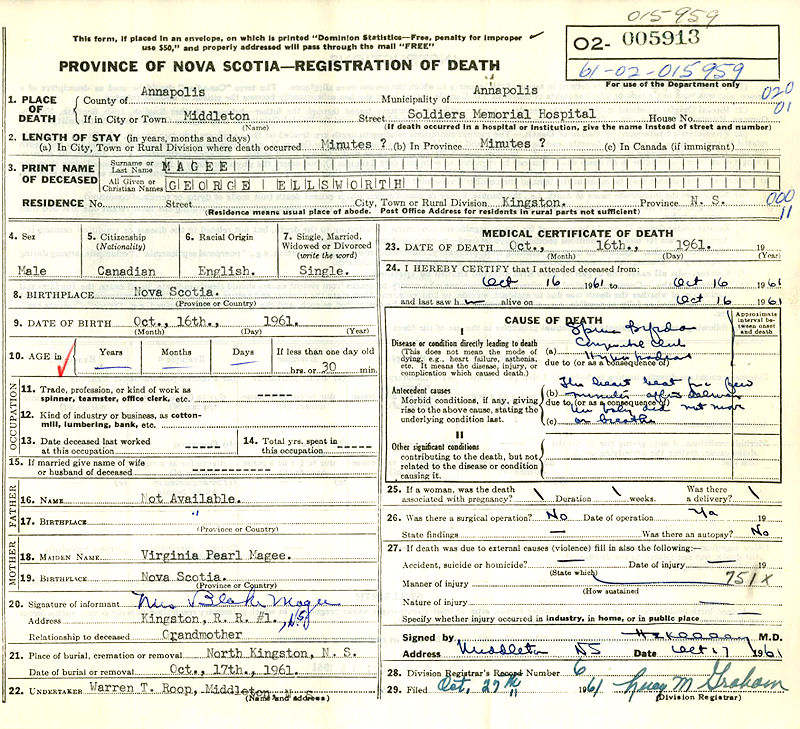 015959
This form, if placed in an envelope, on which is printed "Dominion Statistics—Free, penalty for improper
use $50," and properly addressed will pass through the mail "FREE"
02- 005913
61-02-015959
For use of the Department only
PROVINCE OF NOVA SCOTIA—REGISTRATION OF DEATH
020
01
1. PLACE OF DEATH
County of Annapolis Municipality of Annapolis
If in City or Town Middleton Street Soldiers Memorial Hospital House No.
(Name) (If death occurred in a hospital or institution, give the name instead of street and number)
2. LENGTH OF STAY (in years, months and days)
(a) In City, Town or Rural Division where death occurred Minutes ? (b) In Province Minutes ? (c) In Canada (if immigrant)
3. PRINT NAME OF DECEASED
Surname or Last Name MAGEE
All Given or Christian Names GEORGE ELLSWORTH
RESIDENCE No. Street City, Town or Rural Division Kingston. Province N. S.
000
11
(Residence means usual place of abode. Post Office Address for residents in rural parts not sufficient)
4. Sex
Male
5. Citizenship
(Nationality)
Canadian
6. Racial Origin
English.
7. Single, Married,
Widowed or Divorced
(write the word)
Single.
8. BIRTHPLACE Nova Scotia.
(Province or Country)
9. DATE OF BIRTH Oct., 16th., 1961.
(Month) (Day) (Year)
10. AGE in Years Months Days If less than one day old
hrs. or 30 min.
OCCUPATION
11. Trade, profession, or kind of work as
spinner, teamster, office clerk, etc. -----
12. Kind of industry or business, as cotton-
mill, lumbering, bank, etc. -----
13. Date deceased last worked
at this occupation -----
14. Total yrs. spent in
this occupation -----
15. If married give name of wife
or husband of deceased ----------
FATHER
16. NAME Not Available.
17. BIRTHPLACE "
(Province or Country)
MOTHER
18. MAIDEN NAME Virginia Pearl Magee.
19. BIRTHPLACE Nova Scotia.
(Province or Country)
20. Signature of informant Mrs Blake Magee
Address Kingston, R. R. #1., N.S.
Relationship to deceased Grandmother
21. Place of burial, cremation or removal North Kingston, N. S.
Date of burial or removal Oct., 17th., 1961.
22. UNDERTAKER Warren T. Roop, Middleton, N. S.
(Name and Address)
MEDICAL CERTIFICATE OF DEATH
23. DATE OF DEATH Oct., 16th., 1961. 19
(Month) (Day) (Year)
24. I HEREBY CERTIFY that I attended deceased from:
Oct 16 1961 to Oct 16 1961
and last saw h alive on Oct 16 1961
CAUSE OF DEATH
Approximate
interval be-
tween onset
and death
I
Disease or condition directly leading to death
(This does not mean the mode of
dying, e.g., heart failure, asthenia,
etc. It means the disease, injury, or
complication which caused death.)
Spina Bifida
(a) Congenital Club
due to (or as a consequence of)
Antecedent causes
Morbid conditions, if any, giving
rise to the above cause, stating the
underlying condition last.
The heart beat for few
(b) minutes after delivery
due to (or as a consequence of)
baby did not move
(c) or breathe
II
Other significant conditions
contributing to the death, but not
related to the disease or condition
causing it.
25. If a woman, was the death
associated with pregnancy? \ Duration \ weeks. Was there
a delivery? \
26. Was there a surgical operation? No Date of operation 19
State findings — Was there an autopsy? No
27. If death was due to external causes (violence) fill in also the following:—
Accident, suicide or homicide? — Date of injury — 19
(State which)
Manner of injury 751X
(How sustained
Nature of injury
Specify whether injury occurred in industry, in home, or in public place
Signed by M.D.
Address Middleton NS Date Oct 17 1961
28. Division Registrar's Record Number 6
29. Filed Oct, 27th 1961 Lucy M Graham
11
(Division Registrar)